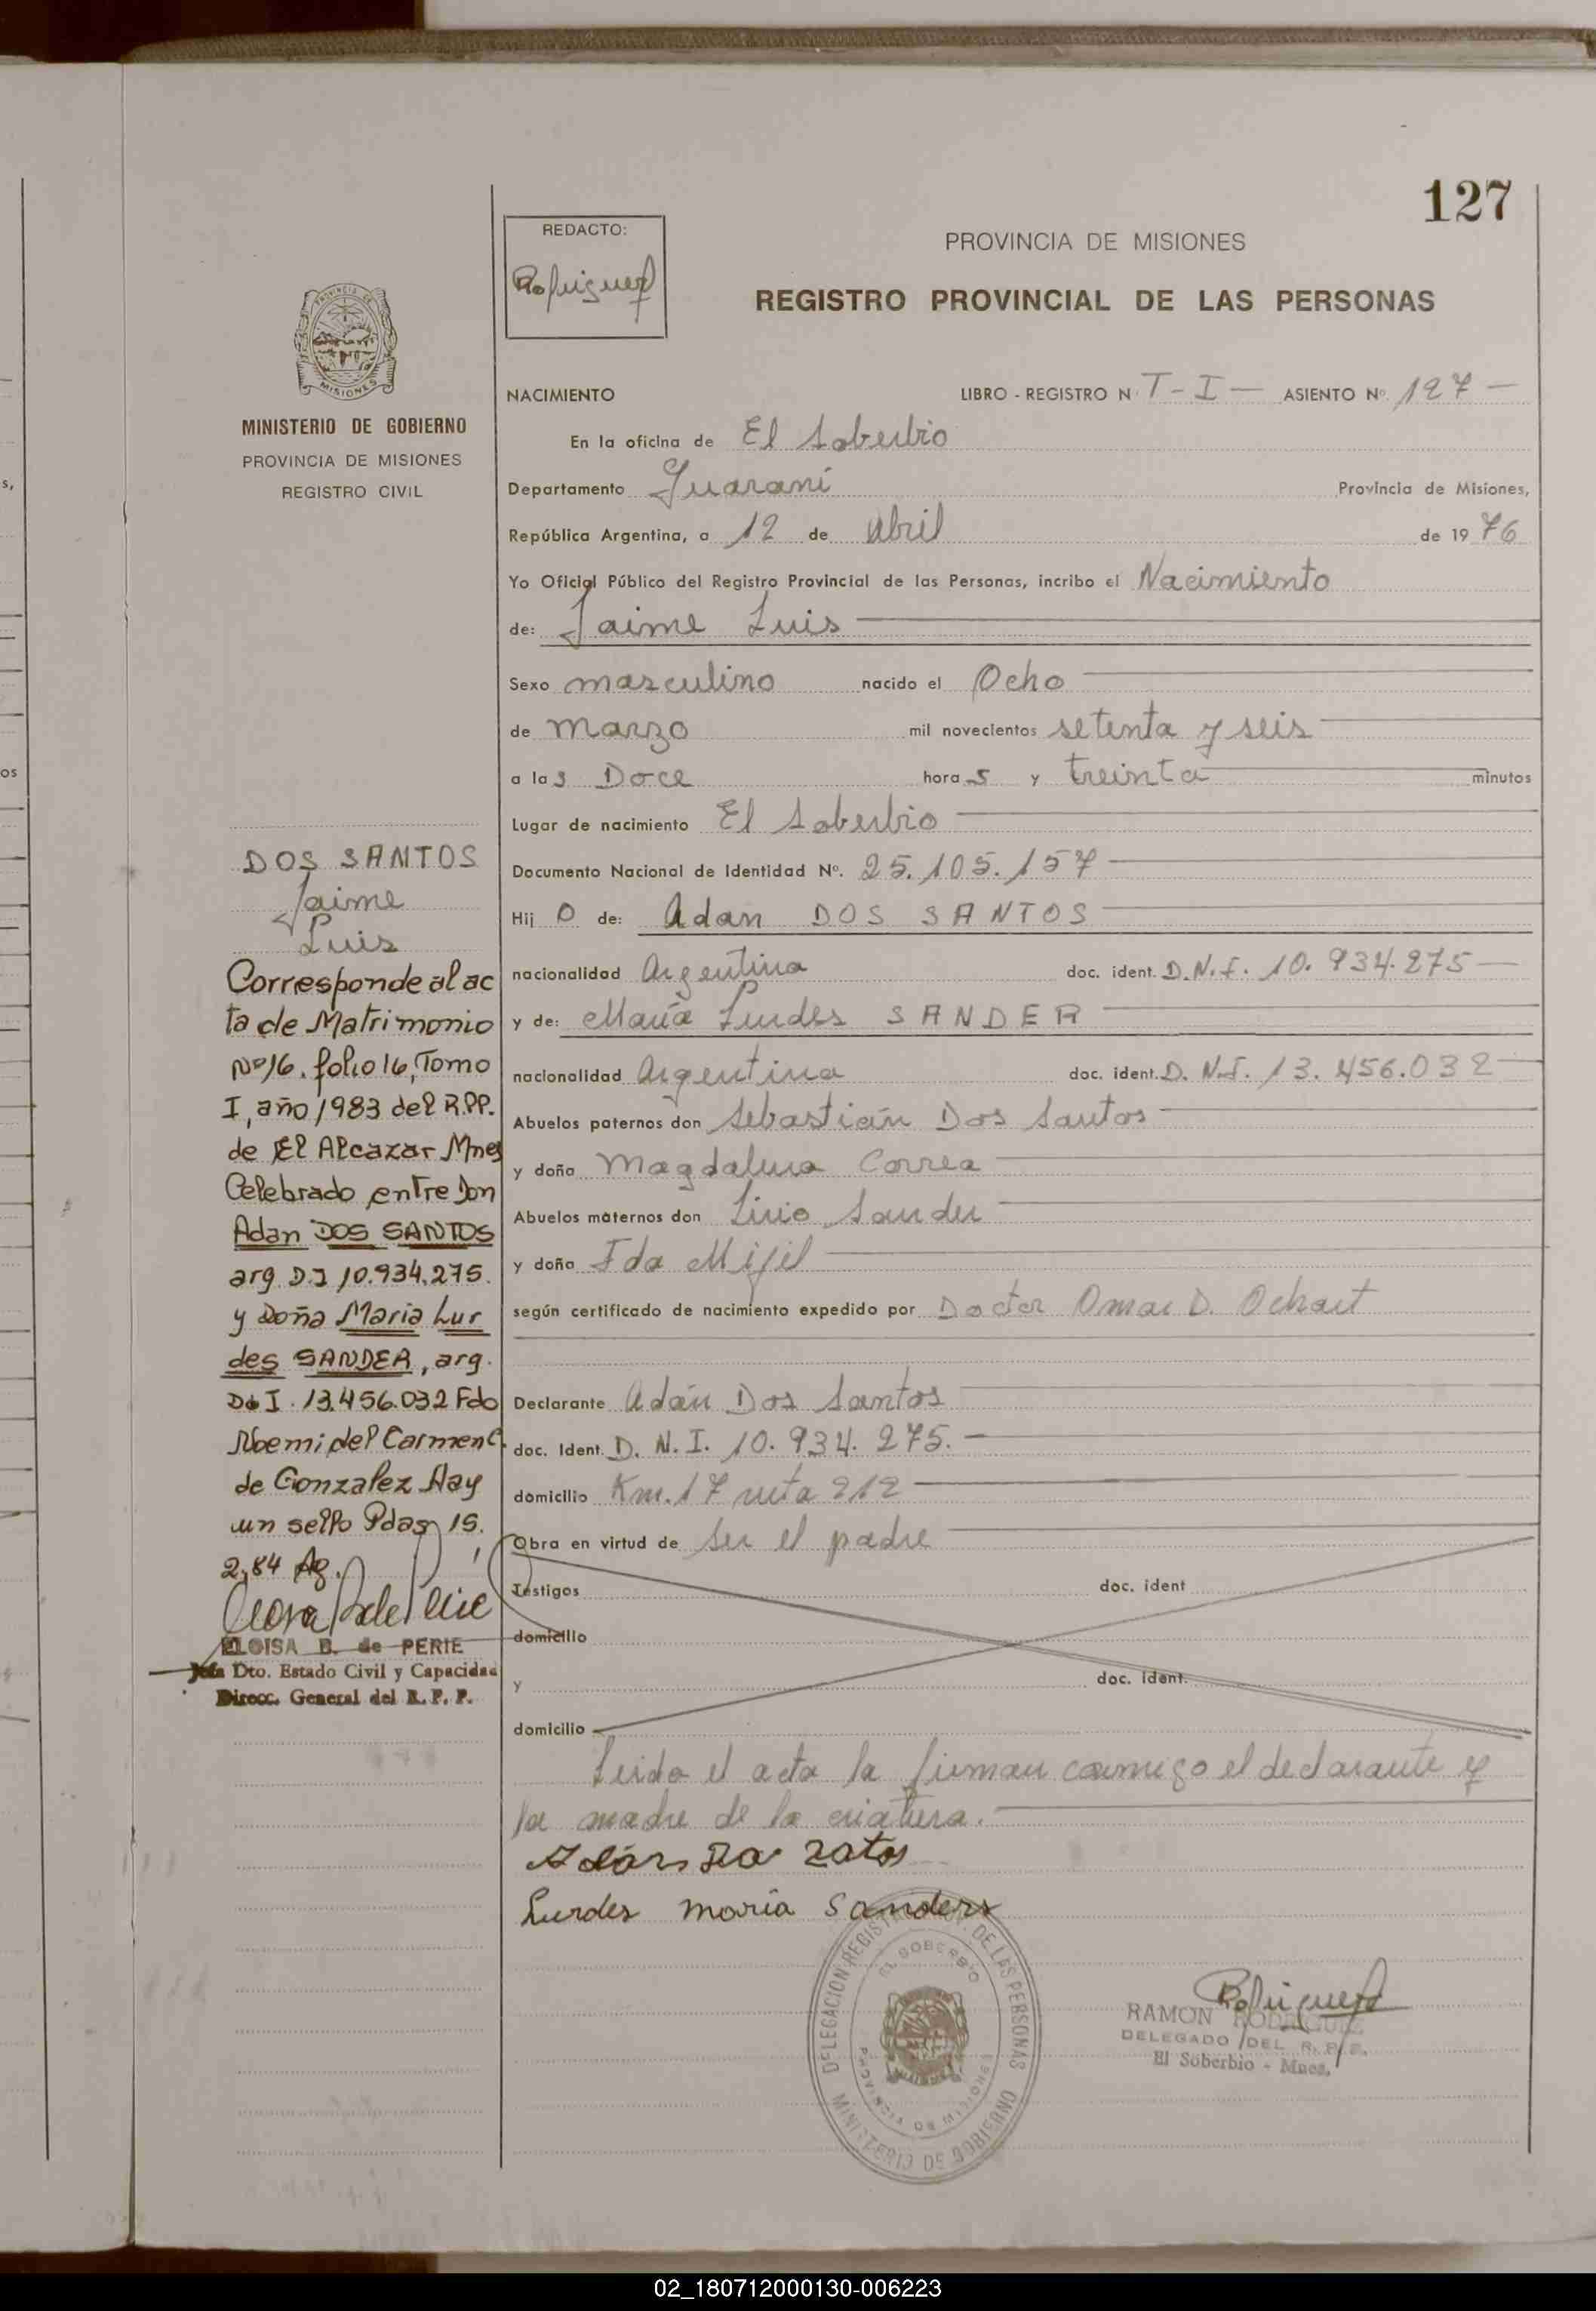 127
REDACTO:
Rodriguez
PROVINCIA DE MISIONES
REGISTRO PROVINCIAL DE LAS PERSONAS
MINISTERIO DE GOBIERNO
PROVINCIA DE MISIONES
REGISTRO CIVIL
NACIMIENTO LIBRO - REGISTRO N T - I — ASIENTO Nº. 127 —
En la oficina de El Soberbio
Departamento Guaraní Provincia de Misiones,
República Argentina, a 12 de abril de 19 76
Yo Oficial Público del Registro Provincial de las Personas, incribo el Nacimiento
de: Jaime Luis
Sexo masculino nacido el Ocho
de marzo mil novecientos setenta y seis
a las Doce horas y treinta minutos
Lugar de nacimiento El Soberbio
Documento Nacional de Identidad Nº. 25.105.157
Hijo de: Adan DOS SANTOS
nacionalidad Argentina doc. ident. D.N.I. 10.934.275
y de: María Lurdes SANDER
nacionalidad Argentina doc. ident. D.N.I. 13.456.032
Abuelos paternos don Sebastián Dos Santos
y doña Magdalena Correa
Abuelos maternos don Livio Sander
y doña Ida
según certificado de nacimiento expedido por Doctor Omar D.
Declarante Adán Dos Santos
doc. Ident. D. N. I. 10.934.275.
domicilio Km. 17 ruta 212
Obra en virtud de ser el padre
Testigos doc. ident
domicilio
y doc. ident.
domicilio
Leida el acta la firman conmigo el declarante y
la madre de la criatura.
Adán Do Zatos
Lurdes maría Sanders
DOS SANTOS
Jaime
Luis
Corresponde al ac
ta de Matrimonio
Nº16. folio 16, Tomo
I, año 1983 del R.P.P.
de El Alcazar Mnes
Celebrado entre Don
Adan DOS SANTOS
arg D.I 10.934.275.
y Doña Maria Lur
des SANDER, arg.
D.I. 13.456.032 Fdo
Noemi del Carmen C.
de Gonzalez Hay
un sello Pdas 15.
2,84
ELOISA B. de PERIE
Jefa Dto. Estado Civil y Capacidad
Direcc. General del R. P. P.
DELEGACION REGISTRO DE LAS PERSONAS
EL SOBERBIO
PROVINCIA DE MISIONES
MINISTERIO DE GOBIERNO
Rodriguez
RAMON RODRIGUEZ
DELEGADO DEL R. P. P.
El Soberbio - Mnes.
02_180712000130-006223